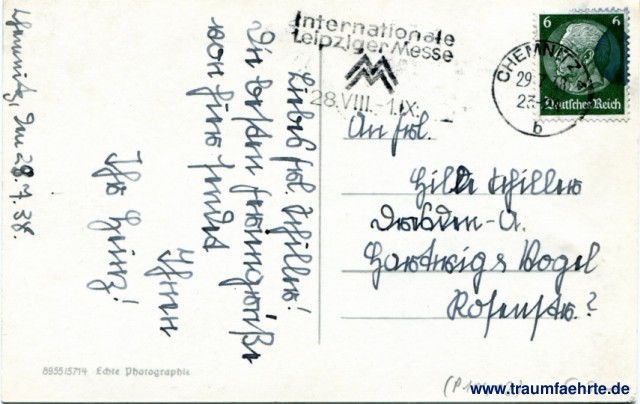 Chemnitz, den 28.7.38.
Liebes Frl. Schiller!
Die besten Feriengrüße
von hier sendet
Ihnen
Ihr Heinz!
Internationale
Leipziger Messe
28.VIII.-1.IX.
CHEMNITZ
29.7.
b
6 6
Deutsches Reich
An Frl.
Hilde Schiller
Dresden-A.
Hartwig & Vogel
Rosenstr.?
8955/5714 Echte Photographie
www.traumfaehrte.de